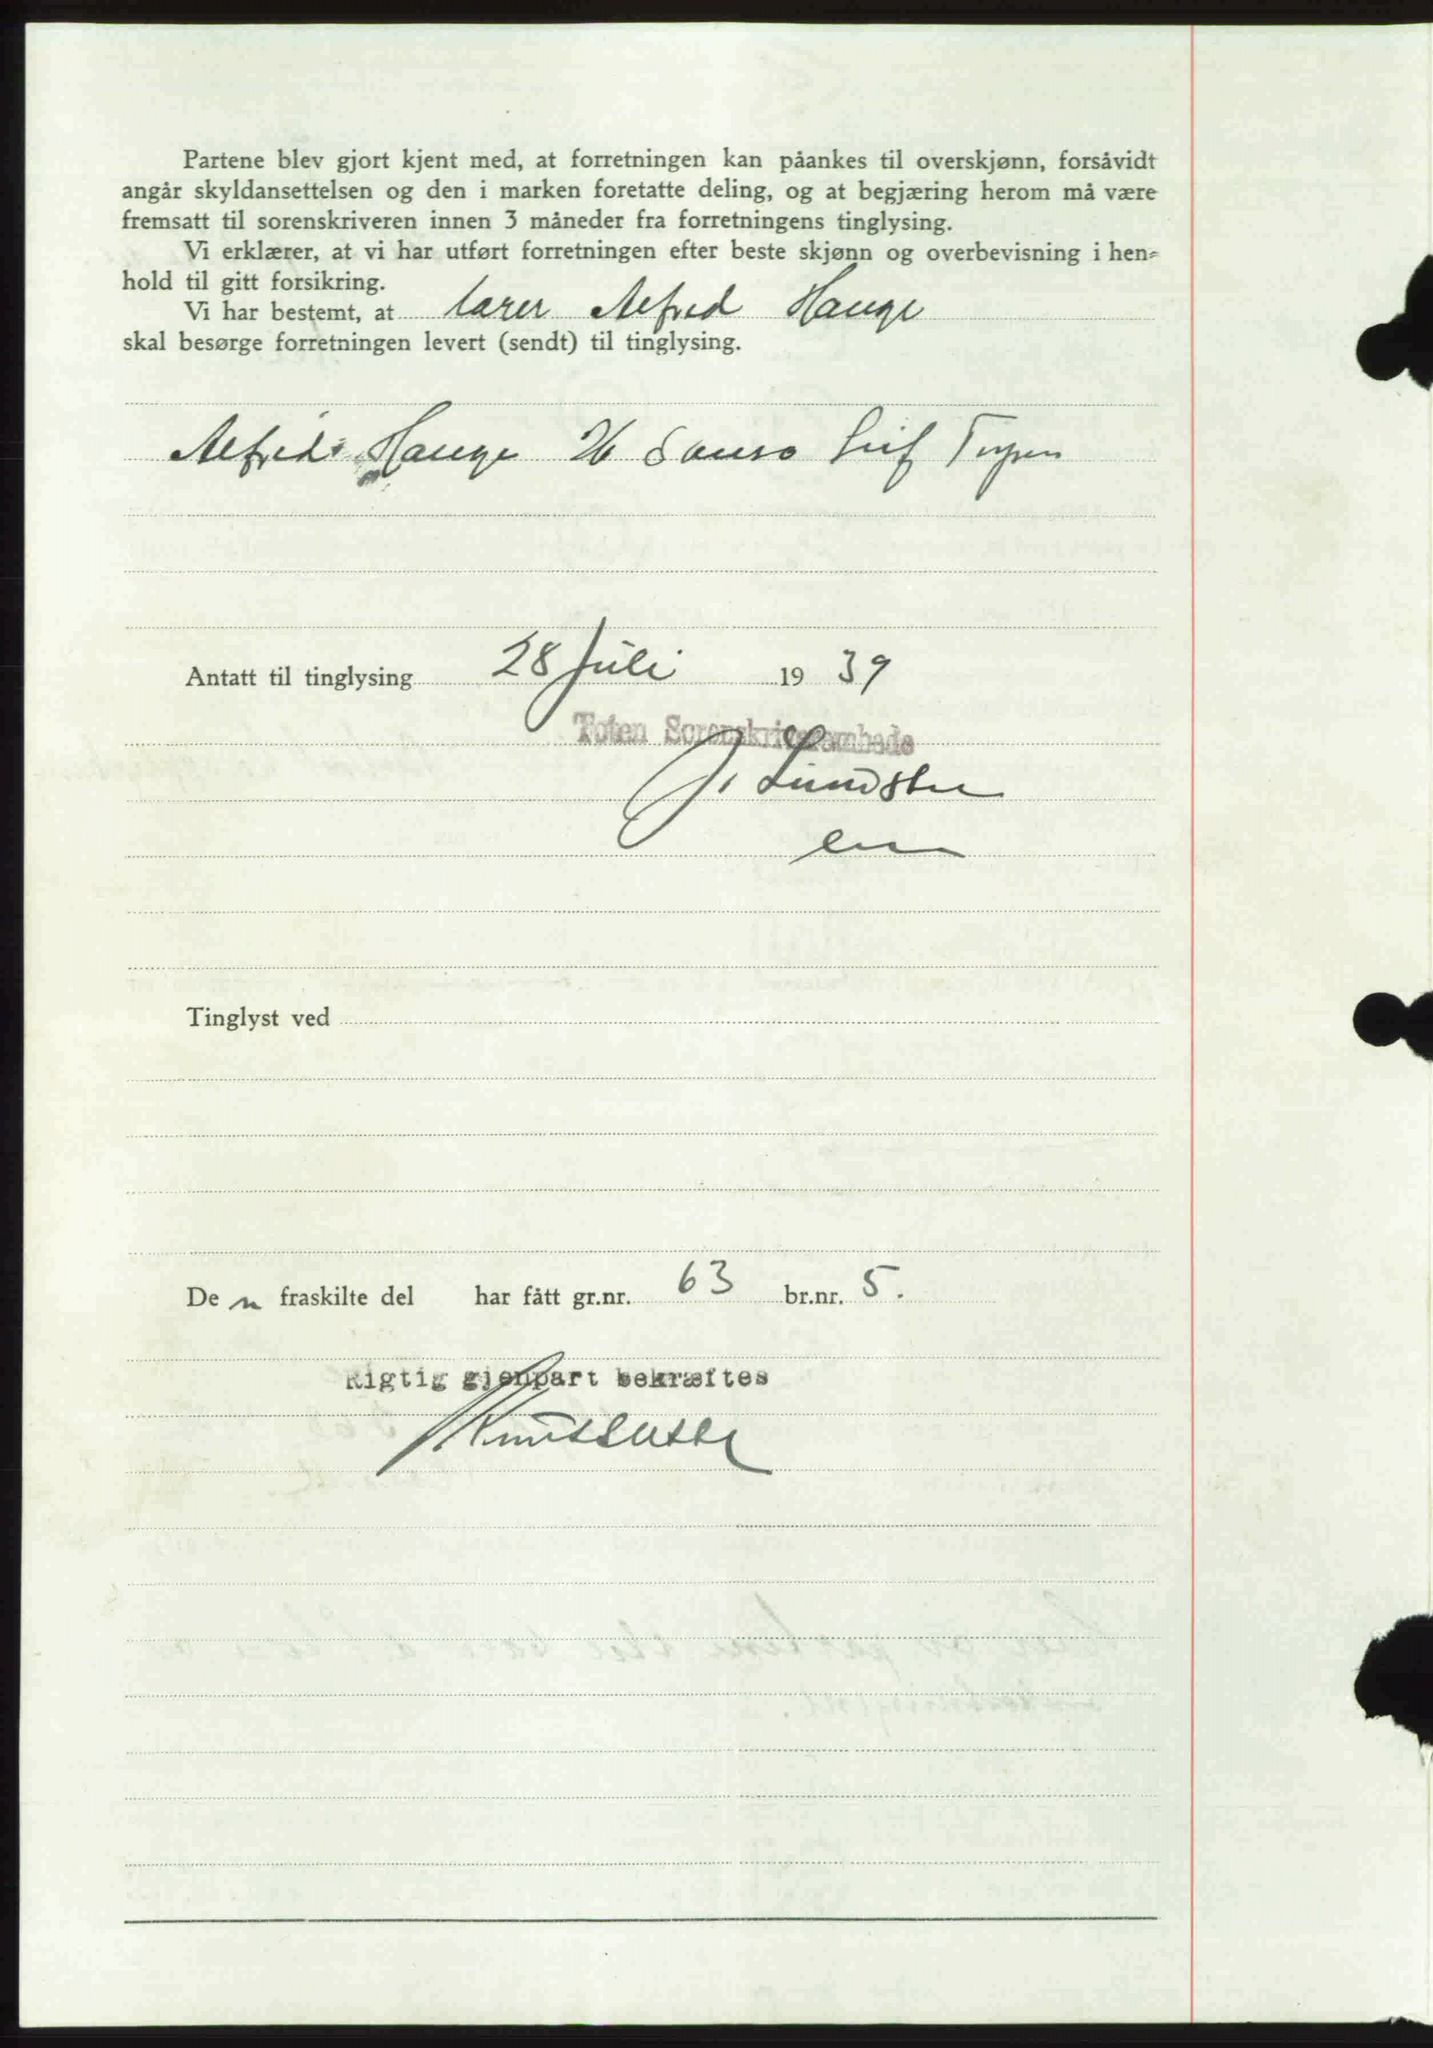 Partene blev gjort kjent med, at forretningen kan påankes til overskjønn, forsåvidt
angår skyldansettelsen og den i marken foretatte deling, og at begjæring herom må være
fremsatt til sorenskriveren innen 3 måneder fra forretningens tinglysing.
Vi erklærer, at vi har utført forretningen efter beste skjønn og overbevisning i hen-
hold til gitt forsikring.
Vi har bestemt, at lærer Alfred Hauge
skal besørge forretningen levert (sendt) til tinglysing.
Alfred Hauge H Leif
Antatt til tinglysing 28 Juli 1939
Toten Sorenskriverembede
J. Lundsten
Tinglyst ved
De n fraskilte del har fått gr.nr. 63 br.nr. 5.
Rigtig gjenpart bekræftes